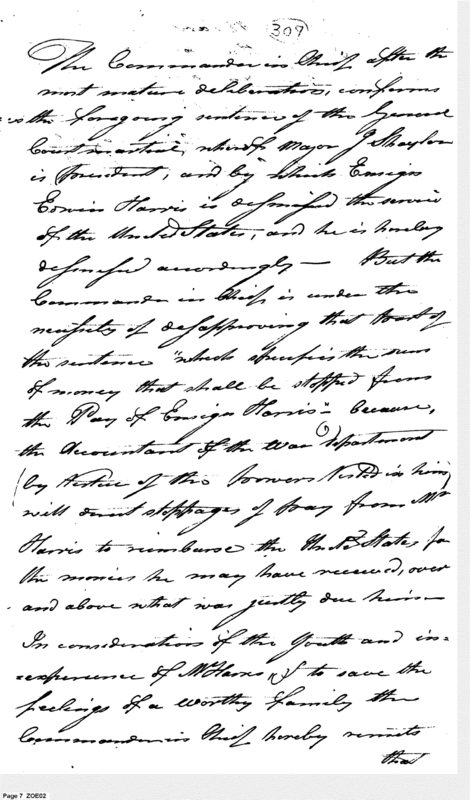 307
The Commander in Chief after the
most mature deliberation, confirms
the foregoing sentence of the General
Court martial, whereof Major J Shaylor
is President, and by which Ensign
Edwin Harris is dismissed the service
of the United States, and he is hereby
dismissed accordingly — But the
Commander in Chief is under the
necessity of disapproving that part of
the sentence "which specifies the sum
of money that shall be stopped from
the Pay of Ensign Harris" because,
the Accountant of the War Department
(by Virtue of the powers Vested in him)
will direct stoppages of pay from Mr
Harris to reimburse the United States for
the monies he may have received, over
and above what was justly due him—
In consideration of the Youth and in=
=experience of Mr Harris, & to save the
feelings of a worthy family the
Commander in Chief hereby remits
that
Page 7 ZOE02